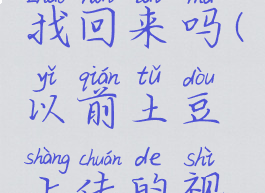 找回来吗(
yǐ qián tǔ dòu
以前土豆
shàng chuán de shì
上传的视